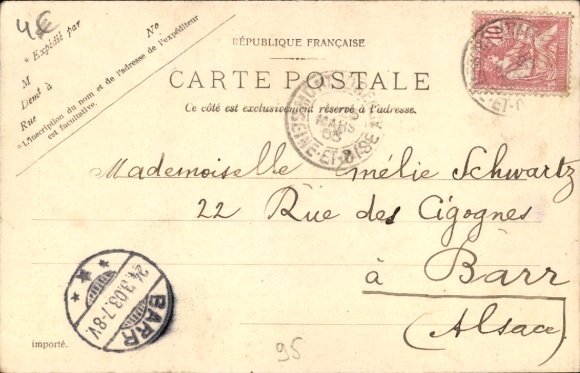 4€
* Expédié par
No
M
Demt à
Rue
* L'inscription du nom et de l'adresse de l'expéditeur
est facultative.
RÉPUBLIQUE FRANÇAISE
CARTE POSTALE
Ce côté est exclusivement réservé à l'adresse.
10
MARS
03
SEINE-ET-OISE
Mademoiselle Amélie Schwartz
22 Rue des Cigognes
à Barr
(Alsace)
24.3.03.7-8V.
BARR
importé.
95